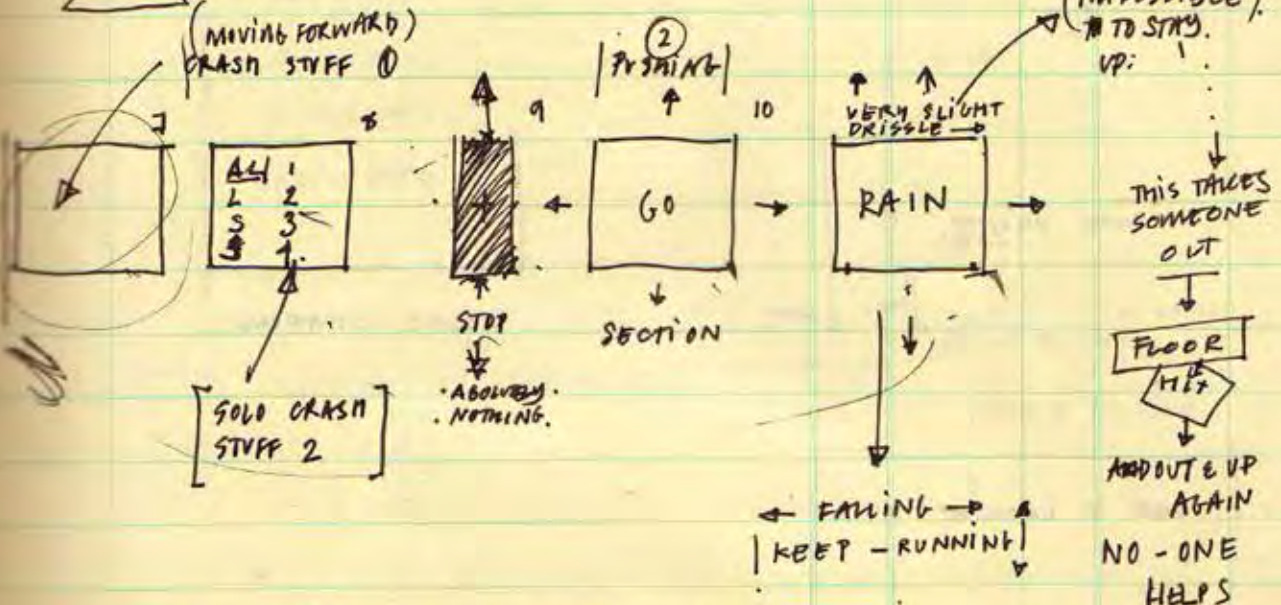 (MOVING FORWARD)
CRASH STUFF 1
7
8
ALL 1
L 2
S 3
S 4.
[SOLO CRASH
STUFF 2]
9
STOP
. ABOLUTELY .
. NOTHING.
2
|PUSHING|
10
GO
SECTION
VERY SLIGHT
DRISSLE
RAIN
FALLING
|KEEP - RUNNING|
TO STAY.
UP:
THIS TAKES
SOMEONE
OUT
FLOOR
HIT
AND OUT & UP
AGAIN
NO - ONE
HELPS